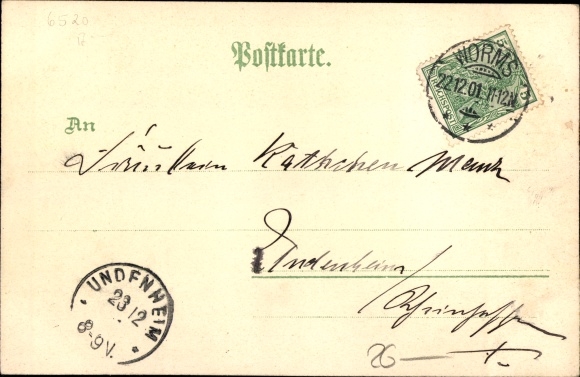 6520
Postkarte.
WORMS
22.12.01.11-12V.
An
Fräulein Käthchen
Undenheim
Rheinhessen
UNDENHEIM
23 12
8-9V.